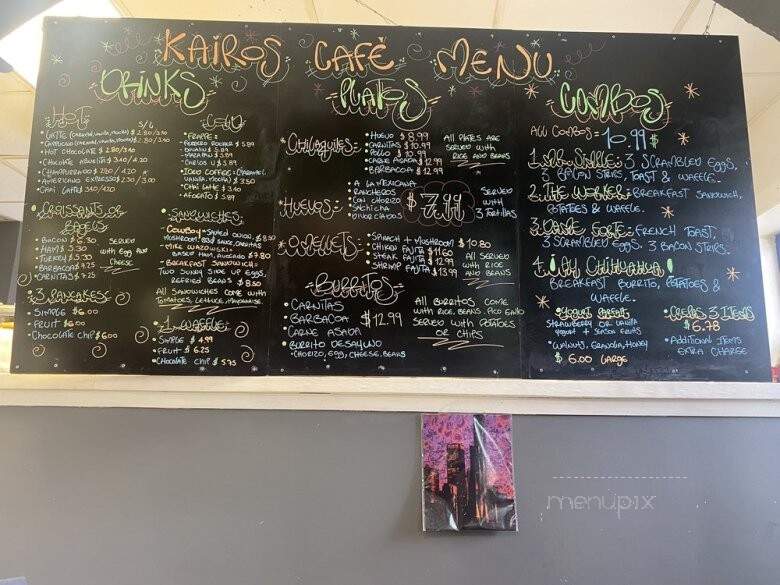 KAIROS CAFÈ MENU
DRINKS
HOT S/L
• LATTE (CARAMEL, VANILLA, MOCHA) $ 2.80/3.40
• HOT CHOCOLATE $ 2.80/3.40
• CHOCOLATE ABUELITA 3.40/4.20
• CHAMPURRADO $ 2.80/4.20
• AMERICANO EXPRESSO $ 2.50/3.00
• CHAI LATTE 3.40/4.20
COLD
• FRAPPE:
FERRERO ROCHER $ 5.89
MAZAPAN $ 5.89
CARLOS V $ 5.89
• ICED COFFEE: (CARAMEL,
VANILLA, MOCHA) $ 3.50
• CHAI LATTE $ 3.40
• AFOGATO $ 5.89
CROISSANTS OR
BAGELS
• BACON $ 6.30
• HAM $ 5.30
• TURKEY $ 5.30
• BARBACOA $ 9.25
• CARNITAS $ 9.25
SERVED
WITH EGG AND
CHEESE
3 PANCAKES:
SIMPLE $6.00
FRUIT $6.00
CHOCOLATE CHIP $6.00
SANDWICHES
• BREAKFAST SANDWICH=
TWO SUNNY SIDE UP EGGS,
REFRIED BEANS $ 8.50
ALL SANDWICHES COME WITH
TOMATOES, LETTUCE, MAYONNAISE
1 WAFFLE:
SIMPLE $ 4.99
FRUIT $ 6.25
CHOCOLATE CHIP $ 5.75
PLATOS
CHILAQUILES=
• HUEVO $ 8.99
• CARNITAS $ 10.99
• POLLO $ 10.99
• CARNE ASADA $ 12.99
• BARBACOA $ 12.99
ALL PLATES ARE
SERVED WITH
RICE AND BEANS
HUEVOS=
• A LA MEXICANA
• RANCHEROS
• CON CHORIZO
SALCHICHA
• DIVORCIADOS
$ 7.99
SERVED
WITH
3 TORTILLAS
OMELLETS
• SPINACH + MUSHROOM $ 10.80
• CHICKEN FAJITA $ 11.60
• STEAK FAJITA $ 12.99
• SHRIMP FAJITA $ 13.99
SERVED
WITH RICE
AND BEANS
BURRITOS
• CARNITAS
• BARBACOA
• CARNE ASADA
$ 12.99
• BURRITO DESAYUNO
• CHORIZO, EGG, CHEESE, BEANS
ALL BURRITOS COME
WITH RICE, BEANS, PICO GALLO
SERVED WITH POTATOES
CHIPS
COMBOS
ALL COMBOS = 10.99 $
3 SCRAMBLED EGGS,
3 BACON STRIPS, TOAST & WAFFLE.
2. THE WORKER= BREAKFAST SANDWICH,
POTATOES & WAFFLE.
FRENCH TOAST,
3 SCRAMBLED EGGS, 3 BACON STRIPS.
4. ¡AY CHIHUAHUA!
BREAKFAST BURRITO, POTATOES &
WAFFLE.
• YOGURT PARFAIT
STRAWBERRY OR VANILLA
YOGURT + SEASON FRUITS
WALNUTS, GRANOLA, HONEY
$ 6.00 LARGE
CREPAS 3 ITEMS
$ 6.78
• ADDITIONAL ITEMS
EXTRA CHARGE
menupix